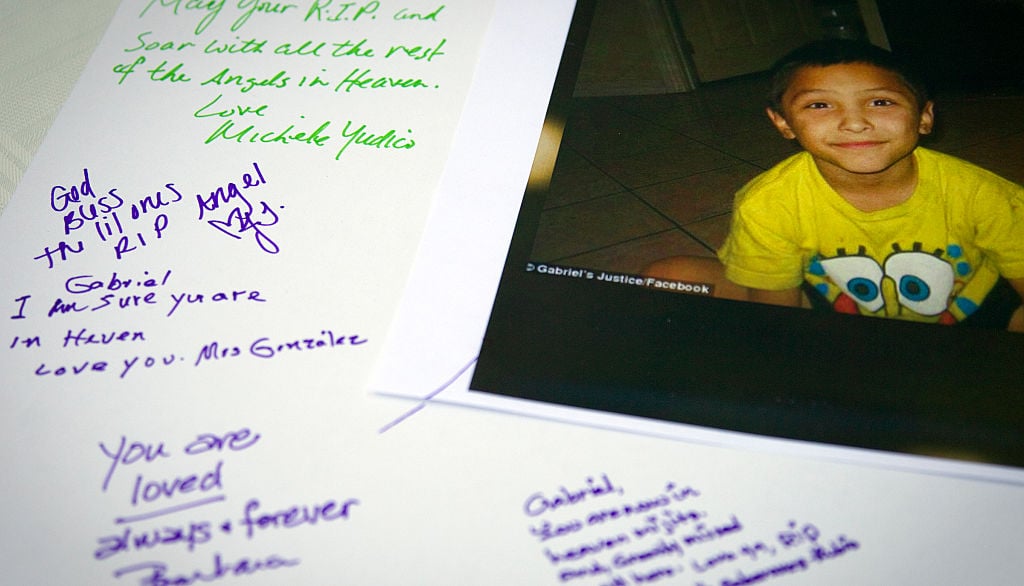 May Your R.I.P. and
Soar with all the rest
of the Angels in Heaven.
Love
Michele Yudico
God
Bless
the lil ones Angel
RIP
Gabriel
I am sure you are
in Heven
Love you. Mrs González
You are
loved
always & forever
Barbara
Gabriel,
You are now in
heaven mijito.
and greatly missed
here. Love ya, RIP
© Gabriel's Justice/Facebook